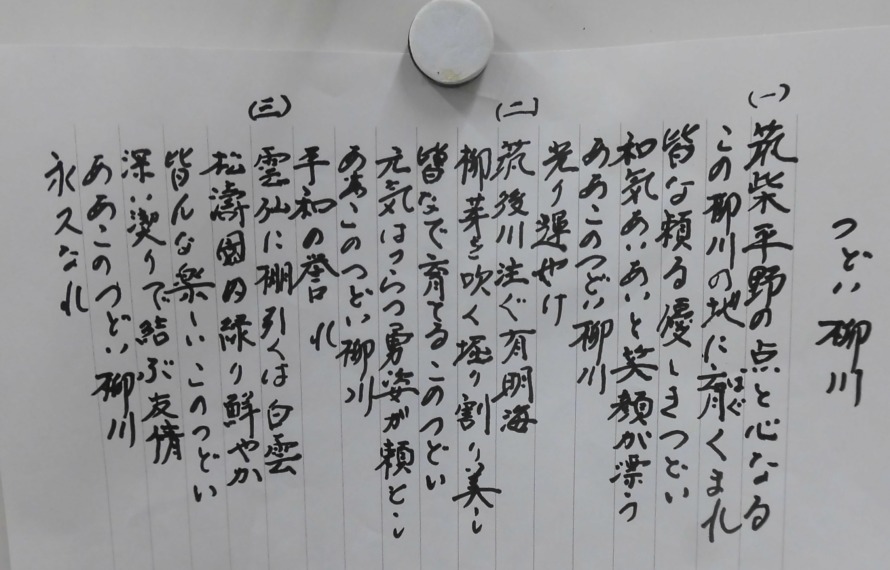 つどい柳川
(一)
筑柴平野の点と心なる
この柳川の地に育くまれ
はぐ
皆な頼る優しきつどい
和気あいあいと笑顔が漂う
ああこのつどい柳川
光り運やけ
(二)
筑後川注ぐ有明海
柳芽き吹く堀り割り美し
皆なで育てるこのつどい
元気はつらつ勇姿が頼とし
ああこのつどい柳川
平和の誉れ
(三)
雲仙に棚引くは白雲
松濤園の緑り鮮やか
皆んな楽しいこのつどい
深い契りで結ぶ友情
ああこのつどい柳川
永久なれ